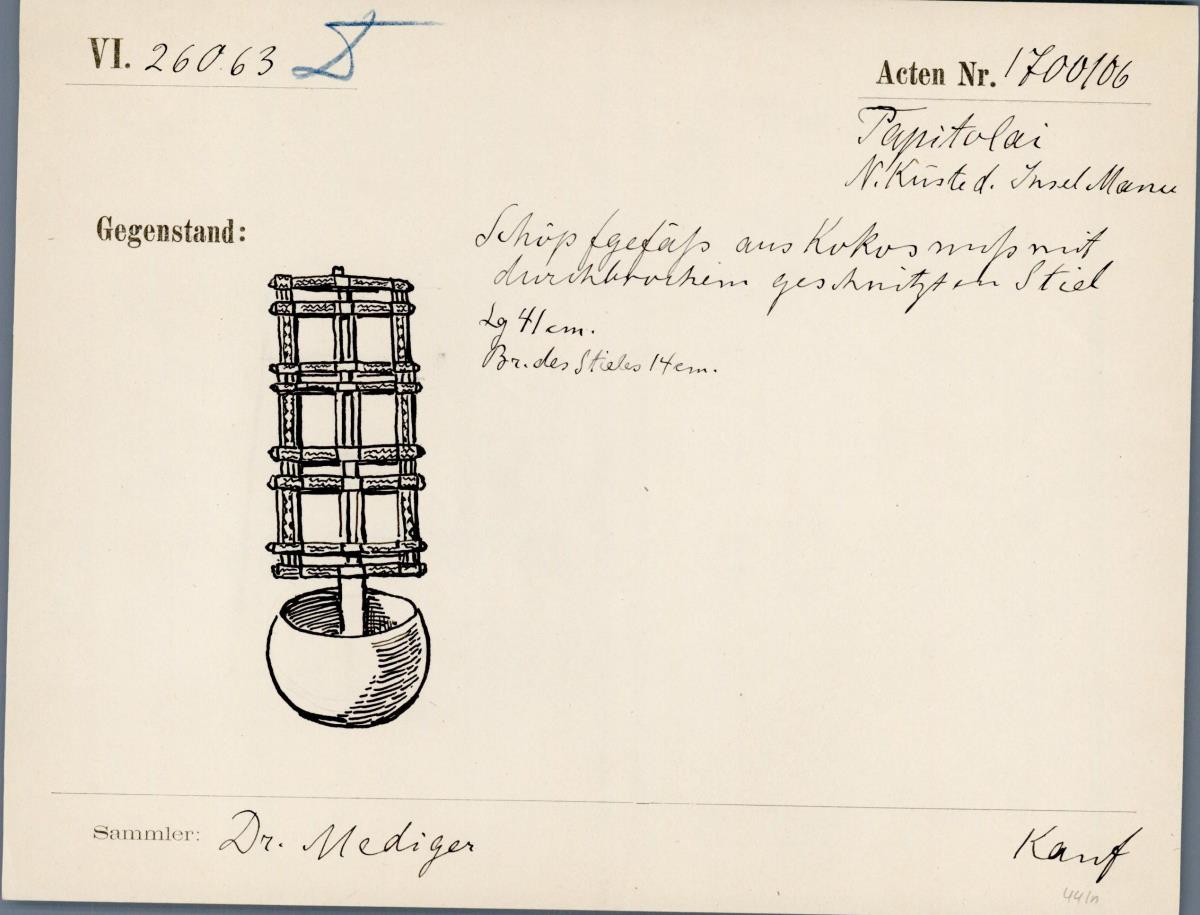 VI. 26063
Acten Nr. 1700/06
Papitalai
N. Küste d. Insel Manu
Gegenstand:
Schöpfgefäß aus Kokosnuß mit
durchbrochem geschnitzten Stiel
Lg 41 cm.
Br. des Stieles 14 cm.
Sammler: Dr. Mediger
Kauf